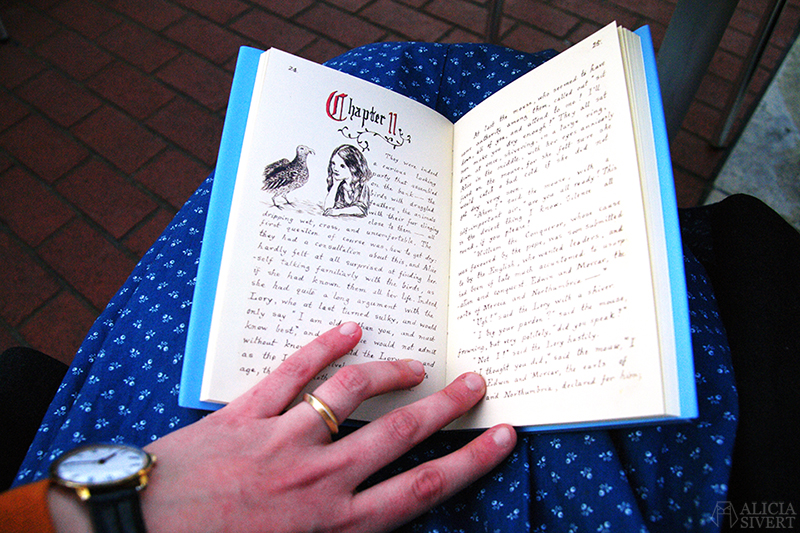 24
Chapter II
They were indeed
a curious looking
party that assembled
on the bank — the
birds with draggled
feathers, the animals
with their fur clinging
close to them — all
dripping wet, cross, and uncomfortable. The
first question of course was, how to get dry:
they had a consultation about this, and Alice
hardly felt at all surprised at finding her
-self talking familiarly with the birds, as
if she had known them all her life. Indeed
she had quite a long argument with the
Lory, who at last turned sulky, and would
only say "I am older than you, and must
know best," and this would not admit
without knowing the Lory
as the Lory
age, the
25.
At last the mouse, who seemed to have
some authority among them, called out "sit
down, all of you, and attend to me! I'll
soon make you dry enough!" They all sat
down at once, shivering, in a large ring,
Alice in the middle, with her eyes anxiously
fixed on the mouse, for she felt sure she
would catch a bad cold if she did not
get dry very soon.
"Ahem!" said the mouse, with a
self-important air, "are you all ready? This
is the driest thing I know. Silence all
round, if you please!
"William the Conqueror, whose cause
was favoured by the pope, was soon submitted
to by the English, who wanted leaders, and
had been of late much accustomed to usurp
-ation and conquest. Edwin and Morcar, the
earls of Mercia and Northumbria——"
"Ugh!" said the Lory with a shiver.
"I beg your pardon?" said the mouse,
frowning, but very politely, "did you speak?"
"Not I!" said the Lory hastily.
"I thought you did," said the mouse, "I
Edwin and Morcar, the earls of
and Northumbria, declared for him;
ALICIA
SIVERT